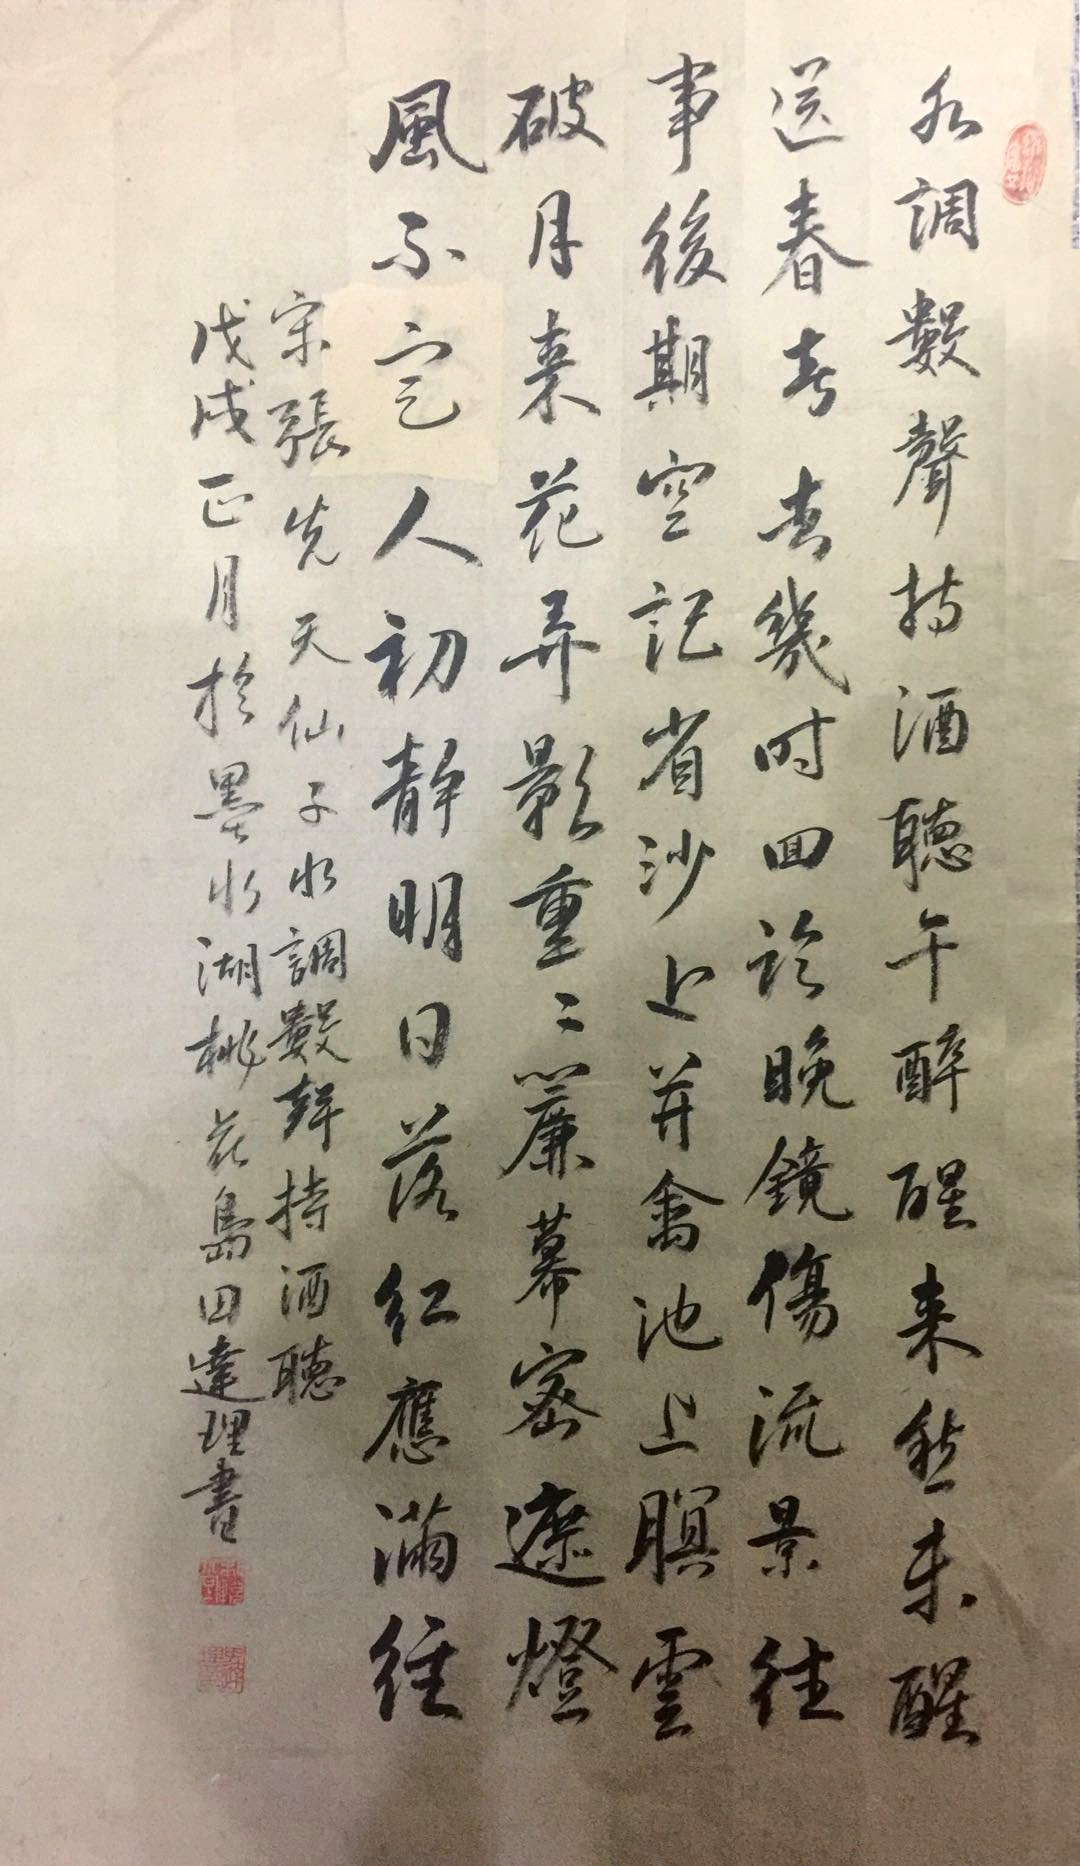 水調數聲持酒聽午醉醒来愁未醒
送春春去幾时回臨晚鏡傷流景往
事後期空記省沙上并禽池上瞑雲
破月来花弄影重〻簾幕密遮燈
風不定人初靜明日落紅應滿徑
宋張先天仙子水調數聲持酒聽
戊戌正月於墨水湖桃花島田達理書